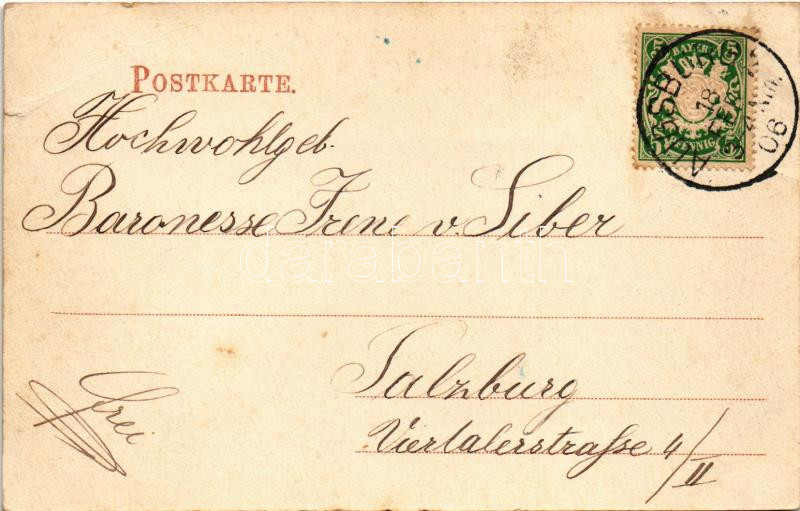 POSTKARTE.
BAYERN
5 5
PFENNIG
AUGSBURG
18
FEB
06
Hochwohlgeb.
Baronesse Irene v. Siber
darabanth
Salzburg
Viertalerstraße 4/II
frei